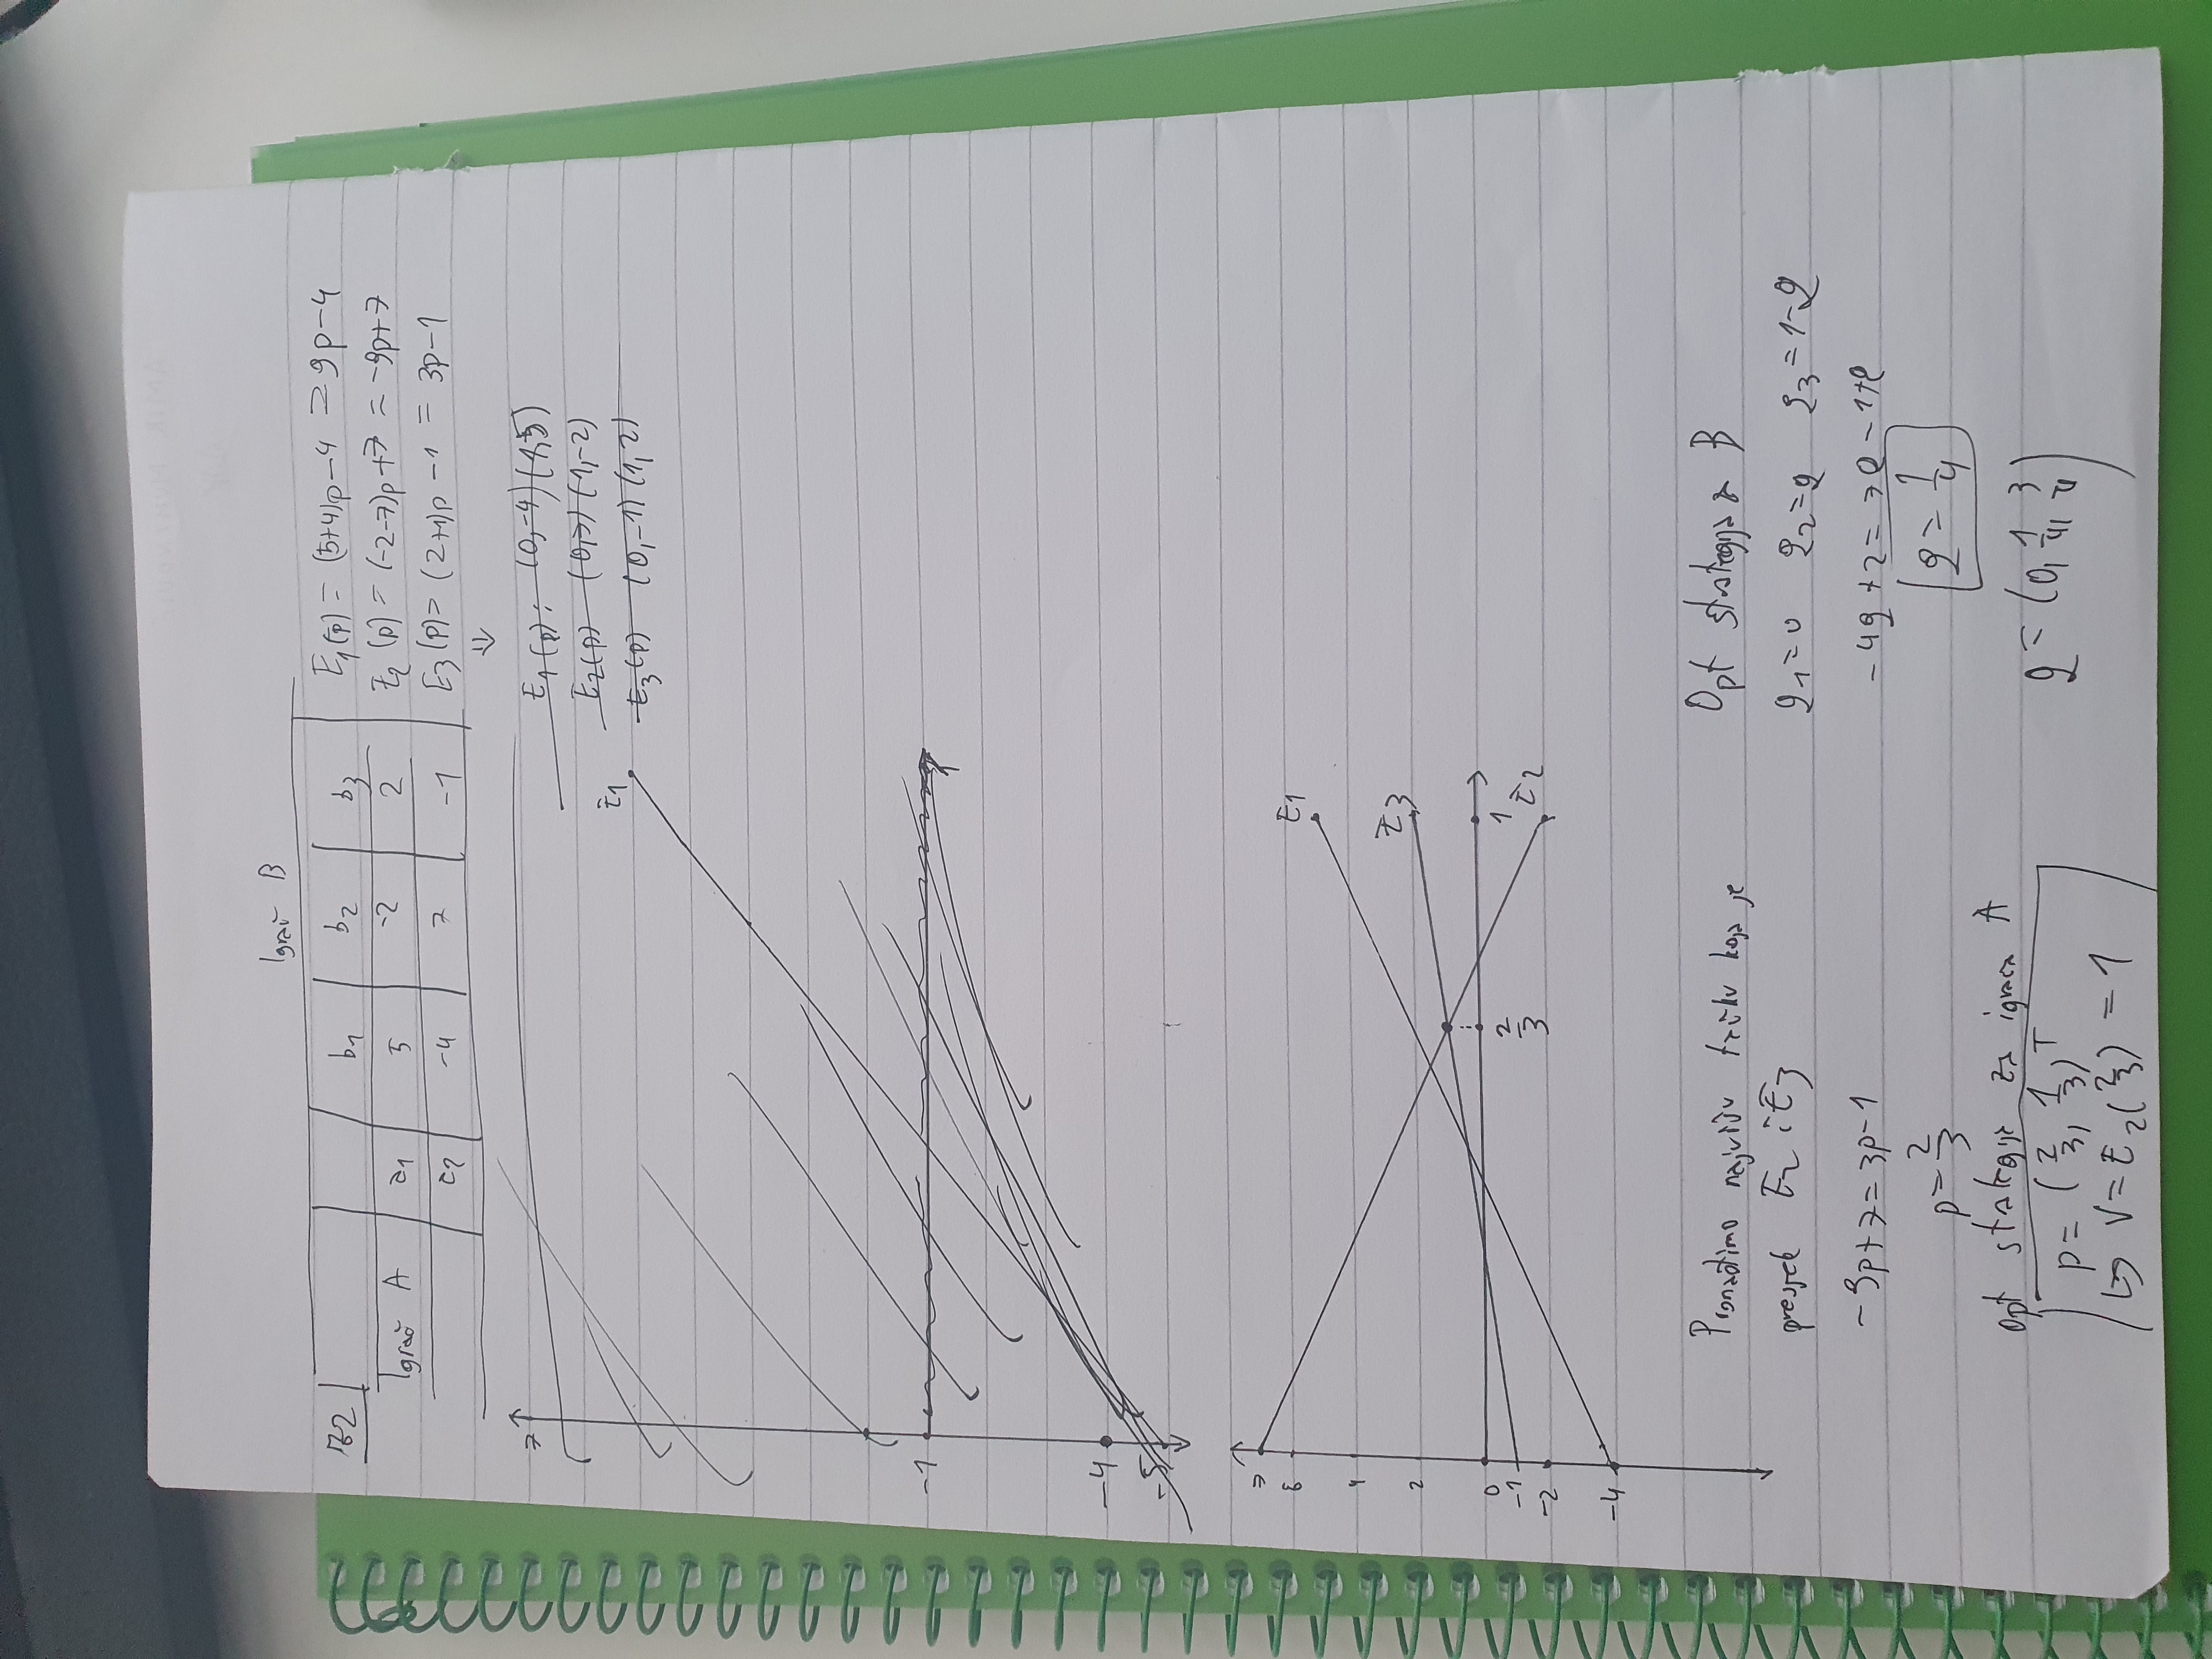 Igrač B
Z2
b1 b2 b3
Igrač A a1 5 -2 2
a2 -4 7 -1
E1(p) = (5+4)p-4 = 9p-4
E2(p) = (-2-7)p+7 = -9p+7
E3(p) = (2+1)p-1 = 3p-1
⇓
E1(p): (0,-4)(1,5)
E2(p) (0,7)(1,-2)
E3(p) (0,-1)(1,2)
7
E1
-1
1
-4
-5
7
6
4
2
0
-1
-2
-4
E1
E3
2/3
1
E2
Pronađimo najvišu tačku koja je
presjek E2 i E3
-9p+7=3p-1
p=2/3
opt strategija za igrača A
p=(2/3, 1/3)^T
↳ V=E2(2/3) = 1
Opt strategija za B
q1=0 q2=q q3=1-q
-4q+2=7q-1+q
q=1/4
q=(0, 1/4, 3/4)